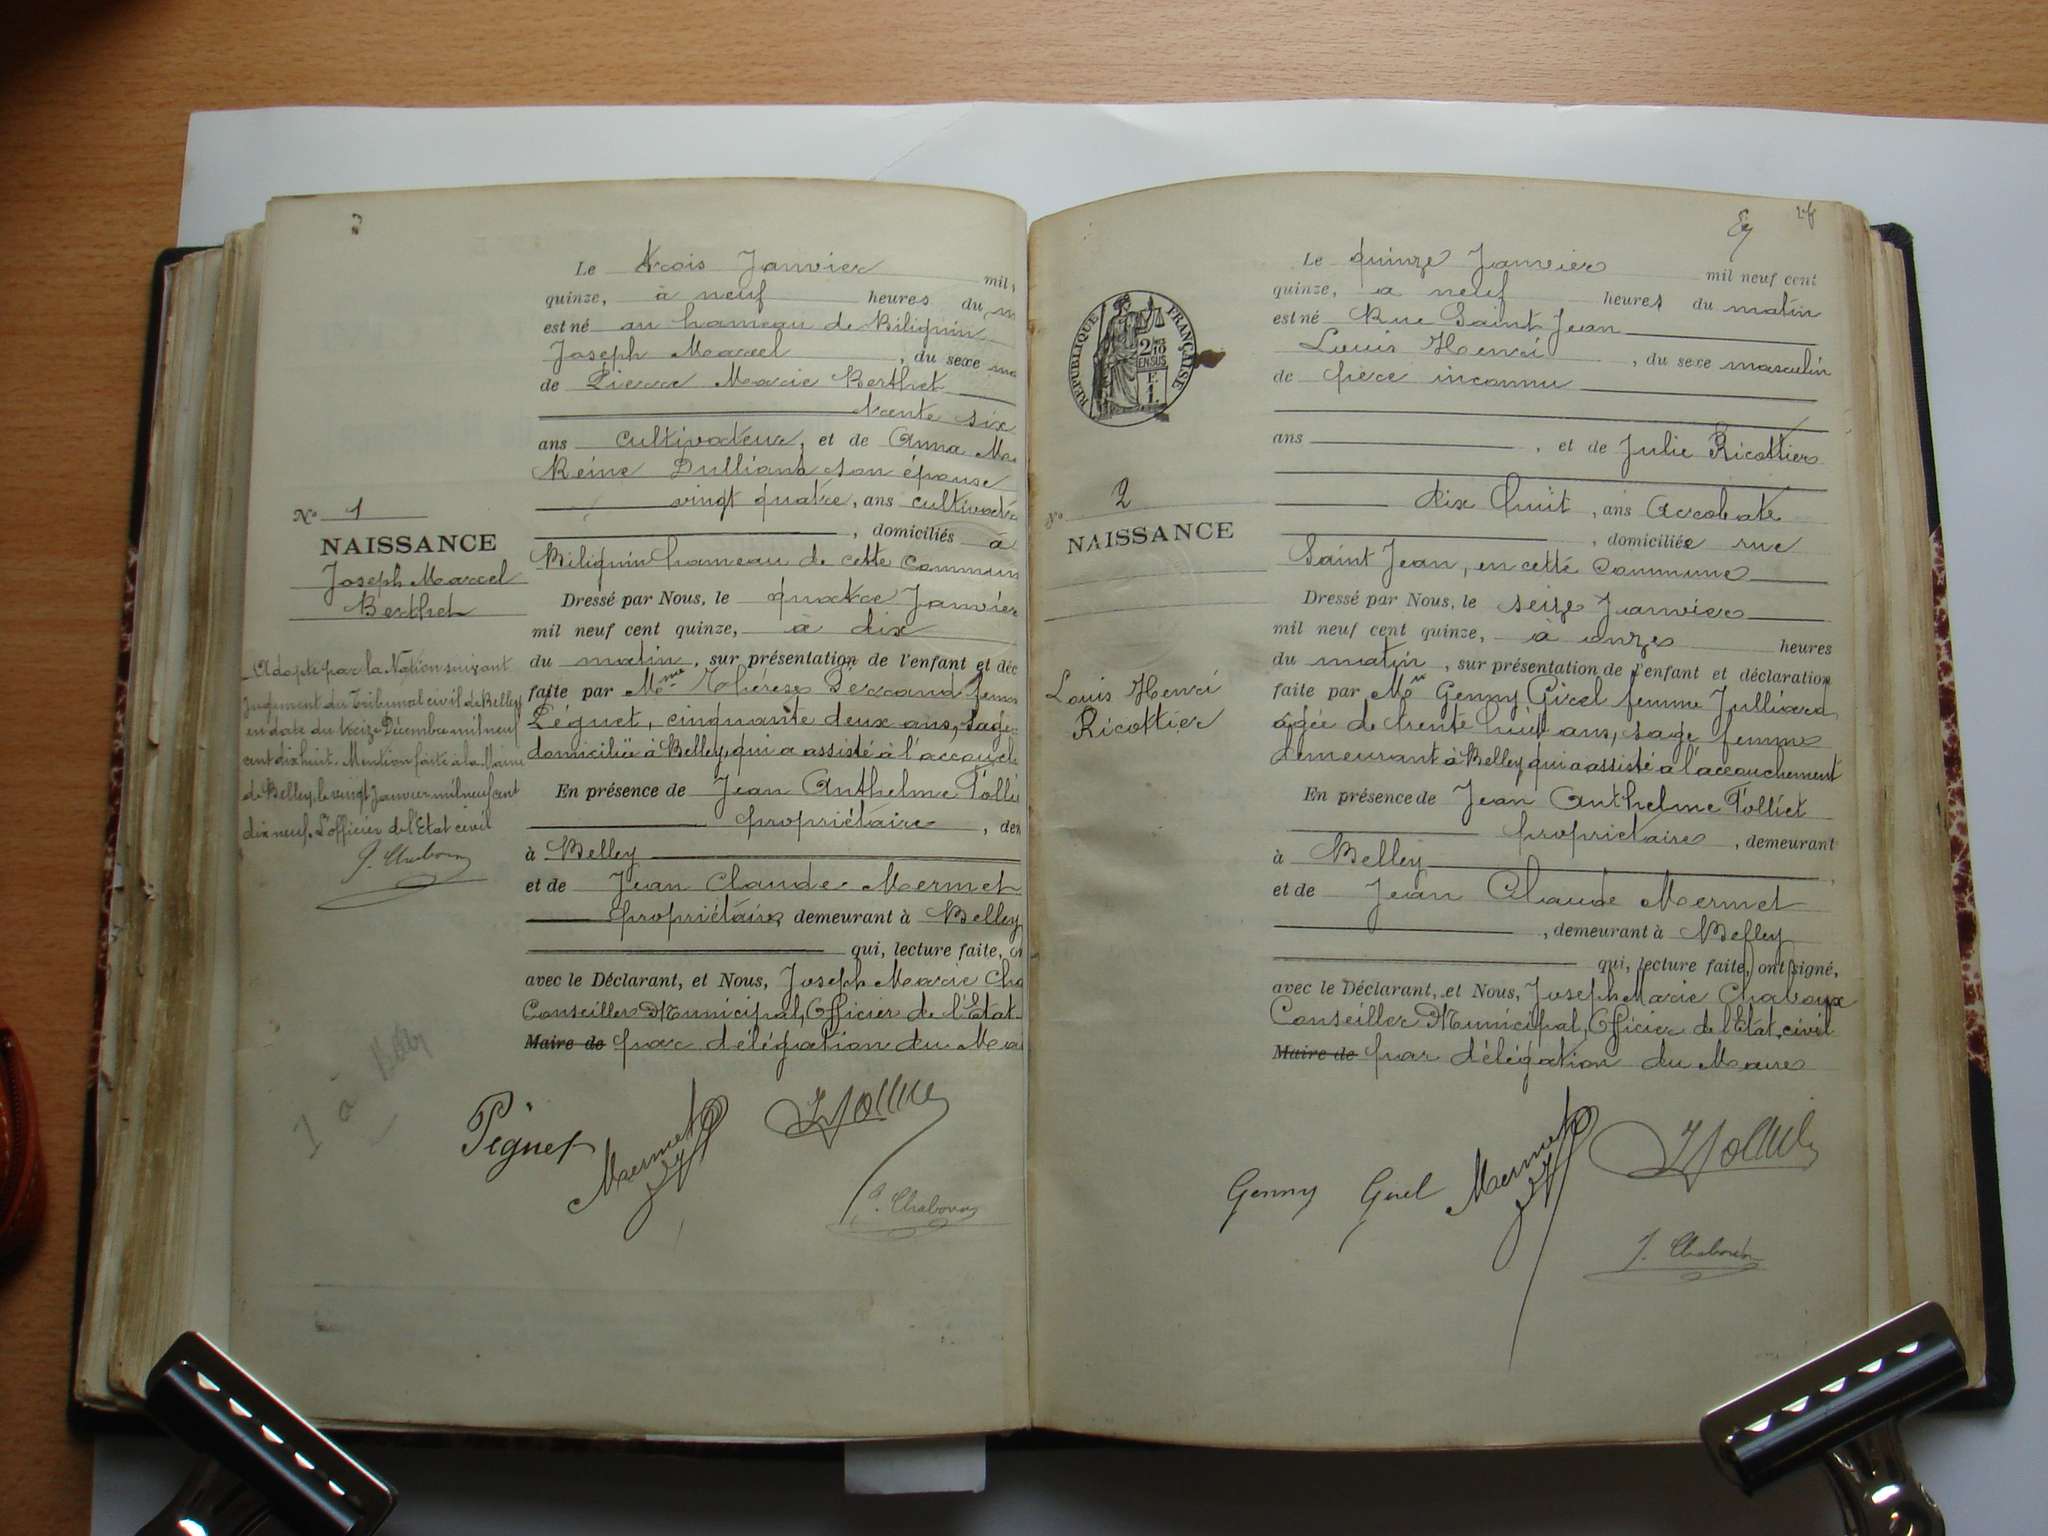 Le trois Janvier mil
quinze, à neuf heures du m
est né au hameau de Biliguin
Joseph Marcel, du sexe ma
de Pierre Marie Berthet
trente six
ans cultivateur, et de Anna Ma
Reine Dulliand son épouse
vingt quatre, ans cultivatr
, domiciliés à
Biliguin hameau de cette commun
Dressé par Nous, le quatre Janvier
mil neuf cent quinze, à dix
du matin, sur présentation de l'enfant et déc
faite par Mme Thérèse Perrand femme
Péguet, cinquante deux ans, sage-
domiciliée à Belley, qui a assisté à l'accouch
En présence de Jean Anthelme Tolli
propriétaire, dem
à Belley
et de Jean Claude Mermet
propriétaire, demeurant à Belley
qui, lecture faite, on
avec le Déclarant, et Nous, Joseph Marie Cha
Conseiller Municipal, Officier de l'Etat
Maire de par délégation du Ma
No 1
NAISSANCE
Joseph Marcel
Berthet
Adopté par la Nation suivant
jugement du Tribunal civil de Belley
en date du treize Décembre mil neuf
cent dix huit. Mention faite à la Mairie
de Belley, le vingt Janvier mil neuf cent
dix neuf. L'officier de l'Etat civil
1 à Belley
Péguet Mermet
Le quinze Janvier mil neuf cent
quinze, à neuf heures du matin
est né Rue Saint Jean
Louis Henri, du sexe masculin
de père inconnu
ans , et de Julie Ricottier
dix huit, ans Acrobate
, domiciliée rue
Saint Jean, en cette commune
Dressé par Nous, le seize Janvier
mil neuf cent quinze, à onze heures
du matin, sur présentation de l'enfant et déclaration
faite par Me Genny Girel femme Julliard
âgée de trente huit ans, sage femme
demeurant à Belley, qui a assisté à l'accouchement
En présence de Jean Anthelme Tolliet
propriétaire, demeurant
à Belley
et de Jean Claude Mermet
, demeurant à Belley
qui, lecture faite, ont signé,
avec le Déclarant, et Nous, Joseph Marie Chaboux
Conseiller Municipal, Officier de l'Etat civil
Maire de par délégation du Maire
RÉPUBLIQUE FRANÇAISE
2/10
EN SUS
E
1
No 2
NAISSANCE
Louis Henri
Ricottier
Genny Girel Mermet